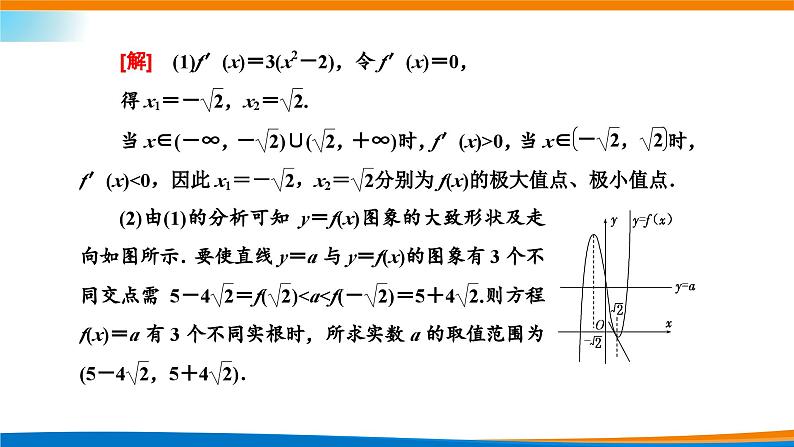 [解] (1)f′(x)＝3(x²－2)，令 f′(x)＝0，
得 x₁＝－√2，x₂＝√2.
当 x∈(－∞，－√2)∪(√2，＋∞)时，f′(x)>0，当 x∈(－√2，√2)时，
f′(x)<0，因此 x₁＝－√2，x₂＝√2分别为 f(x)的极大值点、极小值点．
(2)由(1)的分析可知 y＝f(x)图象的大致形状及走
向如图所示．要使直线 y＝a 与 y＝f(x)的图象有 3 个不
同交点需 5－4√2＝f(√2)<a<f(－√2)＝5＋4√2.则方程
f(x)＝a 有 3 个不同实根时，所求实数 a 的取值范围为
(5－4√2，5＋4√2)．
y y=f(x)
y=a
√2
O x
－√2